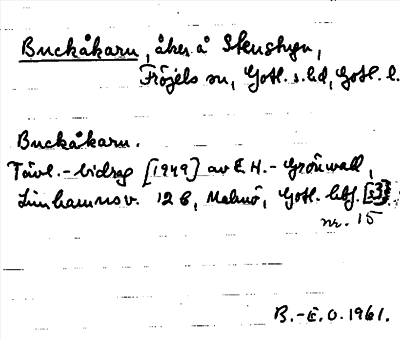 Buckåkaru, åker å Stenstugu,
Fröjels sn, Gotl. s. hd, Gotl. l.
Buckåkaru.
Tävl.-bidrag [1949] av E. H.-Grönwall,
Limhamnsv. 12 B, Malmö, Gotl. hbf. [s3]
nr. 15
B.-E. O. 1961.